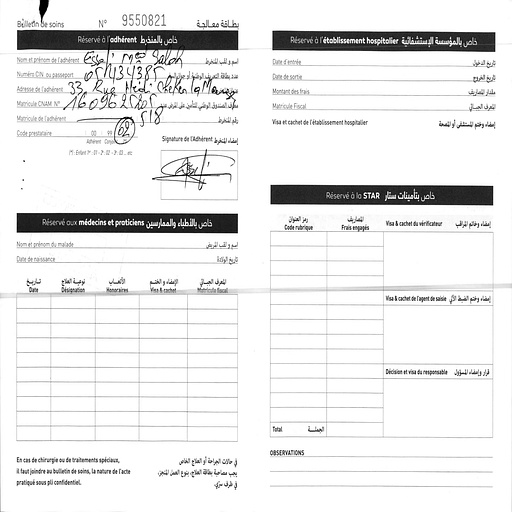 Bulletin de soins N° 9550821 بطاقة معالجة
Réservé à l'adhérent خاص بالمنخرط
Nom et prénom de l'adhérent
Numéro CIN ou passeport 05434385
Adresse de l'adhérent 33 Rue
Matricule CNAM N°
Matricule de l'adhérent 518 رقم المنخرط
Code prestataire 00 99 02
Adhérent
(*) : Enfant 1er : 01 - 2e : 02 - 3e : 03 ... etc
Signature de l'Adhérent إمضاء المنخرط
Réservé aux médecins et praticiens خاص بالأطباء والممارسين
Nom et prénom du malade اسم و لقب المريض
Date de naissance تاريخ الولادة
تاريخ نوعية العلاج الأتعاب الإمضاء و الختم المعرف الجبائي
Date Désignation Honoraires Visa & cachet Matricule fiscal
En cas de chirurgie ou de traitements spéciaux,
il faut joindre au bulletin de soins, la nature de l'acte
pratiqué sous pli confidentiel.
في حالات الجراحة أو العلاج الخاص
يجب مصاحبة بطاقة العلاج، بنوع العمل المنجز،
في ظرف سري.
Réservé à l'établissement hospitalier خاص بالمؤسسة الإستشفائية
Date d'entrée تاريخ الدخول
Date de sortie تاريخ الخروج
Montant des frais مقدار المصاريف
Matricule Fiscal المعرف الجبائي
Visa et cachet de l'établissement hospitalier إمضاء وختم المستشفى أو المصحة
Réservé à la STAR خاص بتأمينات ستار
رمز العنوان المصاريف
Code rubrique Frais engagés
Visa & cachet du vérificateur إمضاء وخاتم المراقب
Visa & cachet de l'agent de saisie إمضاء وختم الضبط الآلي
Décision et visa du responsable قرار وإمضاء المسؤول
Total الجملة
OBSERVATIONS